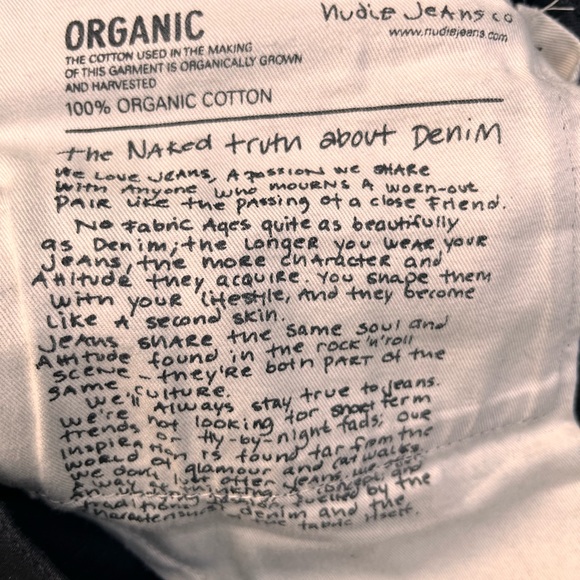 ORGANIC
THE COTTON USED IN THE MAKING
OF THIS GARMENT IS ORGANICALLY GROWN
AND HARVESTED
100% ORGANIC COTTON
Nudie Jeans co
www.nudiejeans.com
The Naked truth about Denim
We love jeans, a passion we share
with anyone who mourns a worn-out
pair like the passing of a close friend.
No fabric ages quite as beautifully
as Denim; the longer you wear your
jeans, the more character and
Attitude they acquire. You shape them
with your lifestyle, and they become
like a second skin.
Jeans share the same soul and
Attitude found in the rock'n'roll
scene – they're both part of the
same culture.
We'll always stay true to jeans.
we're not looking for short term
trends or fly-by-night fads; our
inspiration is found far from the
world of glamour and cat walks.
we don't
away at just offer jeans, we
an
traditional denim fuelled by the
characteristics denim and the
the fabric itself.